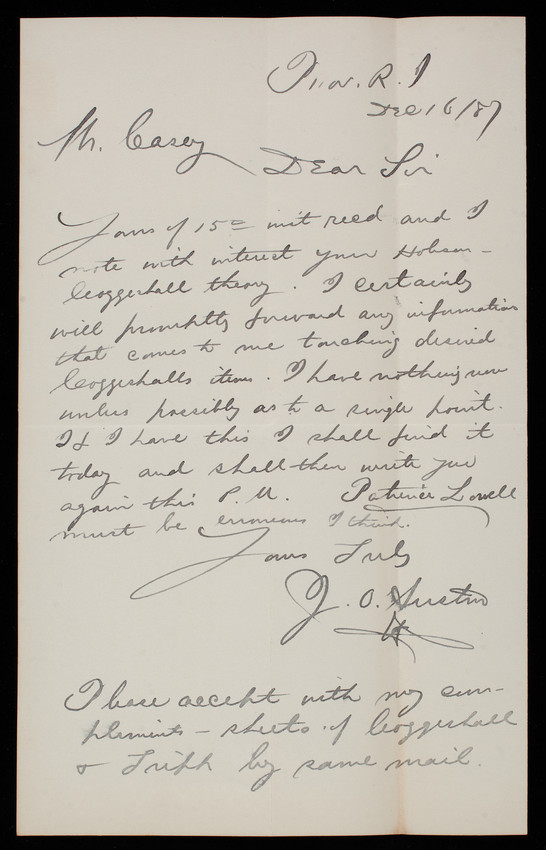 Prov. R. I
Dec 16/87
Mr. Casey
Dear Sir
Yours of 15th inst recd and I
note with interest your Hobson-
Coggeshall theory. I certainly
will promptly forward any information
that comes to me touching desired
Coggeshalls items. I have nothing now
unless possibly as to a single point.
If I have this I shall find it
today and shall then write you
again this P. M. Patience Lowell
must be erroneous I think.
Yours Truly
J. O. Austin
Please accept with my com-
pliments - sheets of Coggeshall
& Tripp by same mail.